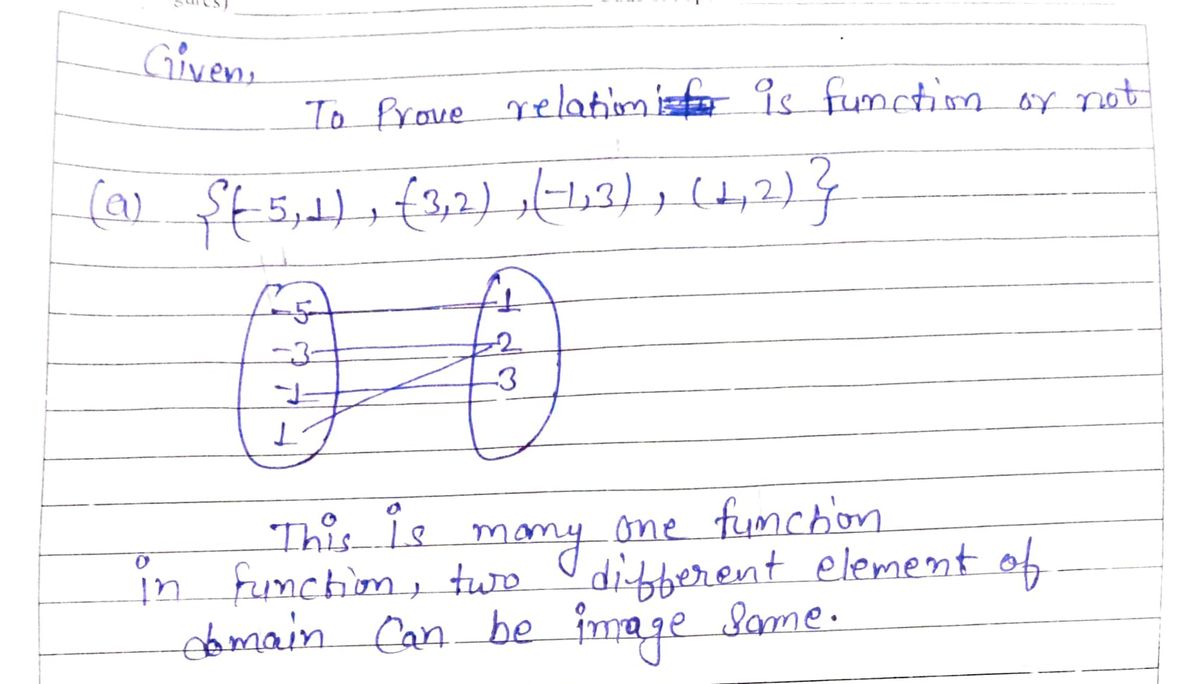 Given,
To Prove relation is function or not
(a) {(-5,1), (-3,2), (-1,3), (1,2)}
-5 1
-3 2
-1 3
1
This is many one function
in function, two different element of
domain can be image same.